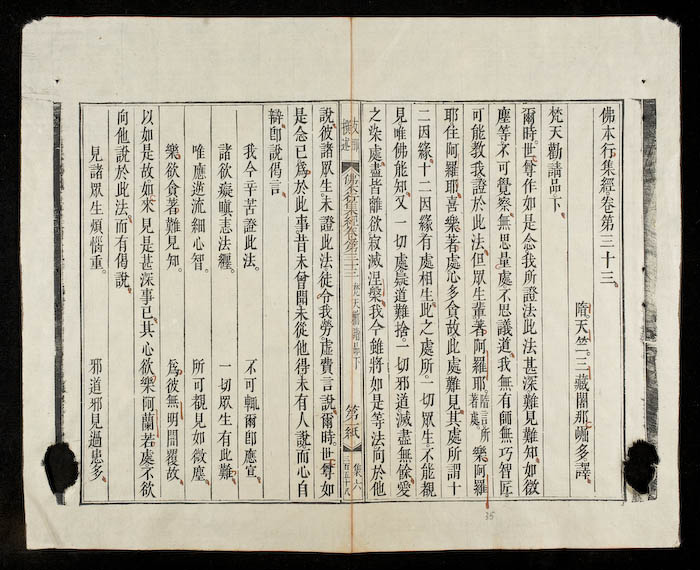 佛本行集經卷第三十三
隋天竺三藏闍那崛多譯
梵天勸請品下
爾時世尊作如是念我所證法此法甚深難見難知如微
塵等不可覺察無思量處不思議道我無有師無巧智匠
可能教我證於此法但眾生輩著阿羅耶隋言所著處樂阿羅
耶住阿羅耶喜樂著處心多貪故此處難見其處所謂十
二因緣十二因緣有處相生此之處所一切眾生不能覩
見唯佛能知又一切處道難捨一切邪道滅盡無餘愛
之染處盡皆離欲寂滅涅槃我今雖將如是等法向於他
佛本行集經卷第三十三 梵天勸請品下 第一紙 集六
說彼諸眾生未證此法徒令我勞虛費言說爾時世尊如
是念已為於此事昔未曾聞未從他得未有人說而心自
辯即說偈言
我今辛苦證此法。 不可輒爾即應宣。
諸欲癡瞋恚法纏。 一切眾生有此難。
唯應逆流細心智。 所可觀見如微塵。
樂欲貪著難見知。 為彼無明闇覆故。
以如是故如來見是甚深事已其心欲樂阿蘭若處不欲
向他說於此法而有偈說
見諸眾生煩惱重。 邪道邪見過患多。
35